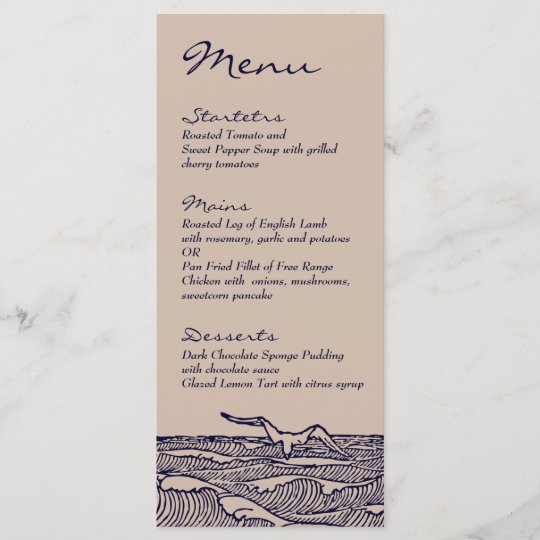 Menu
Startetrs
Roasted Tomato and
Sweet Pepper Soup with grilled
cherry tomatoes
Mains
Roasted Leg of English Lamb
with rosemary, garlic and potatoes
OR
Pan Fried Fillet of Free Range
Chicken with onions, mushrooms,
sweetcorn pancake
Desserts
Dark Chocolate Sponge Pudding
with chocolate sauce
Glazed Lemon Tart with citrus syrup